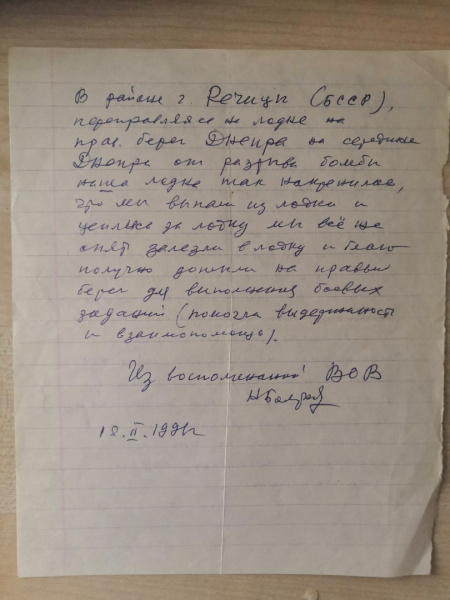 В районе г. Речицы (БССР),
переправляясь на лодке на
прав. берег Днепра на середине
Днепра от разрыва бомбы
наша лодка так накренилась,
что мы выпали из лодки и
уцепившись за лодку мы всё же
опять залезли в лодку и благо-
получно доплыли на правый
берег для выполнения боевых
заданий (помогла выдержанность
и взаимопомощь).
Из воспоминаний ВОВ
18.II.1991г